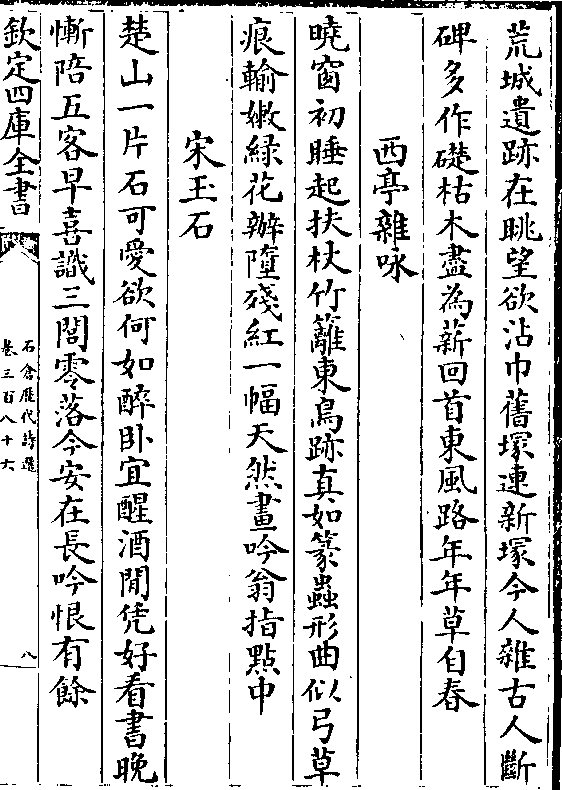 荒城遺跡在眺望欲沾巾舊塚連新塚今人雜古人斷
碑多作礎枯木盡為薪回首東風路年年草自春
西亭雜咏
曉窗初睡起扶杖竹籬東鳥跡真如篆蟲形曲似弓草
痕輸嫩綠花瓣墮殘紅一幅天然畫吟翁指點中
宋玉石
楚山一片石可愛欲何如醉卧宜醒酒閒凭好看書晚
慚陪五客早喜識三閭零落今安在長吟恨有餘
欽定四庫全書
石倉歷代詩選
卷三百八十六
八